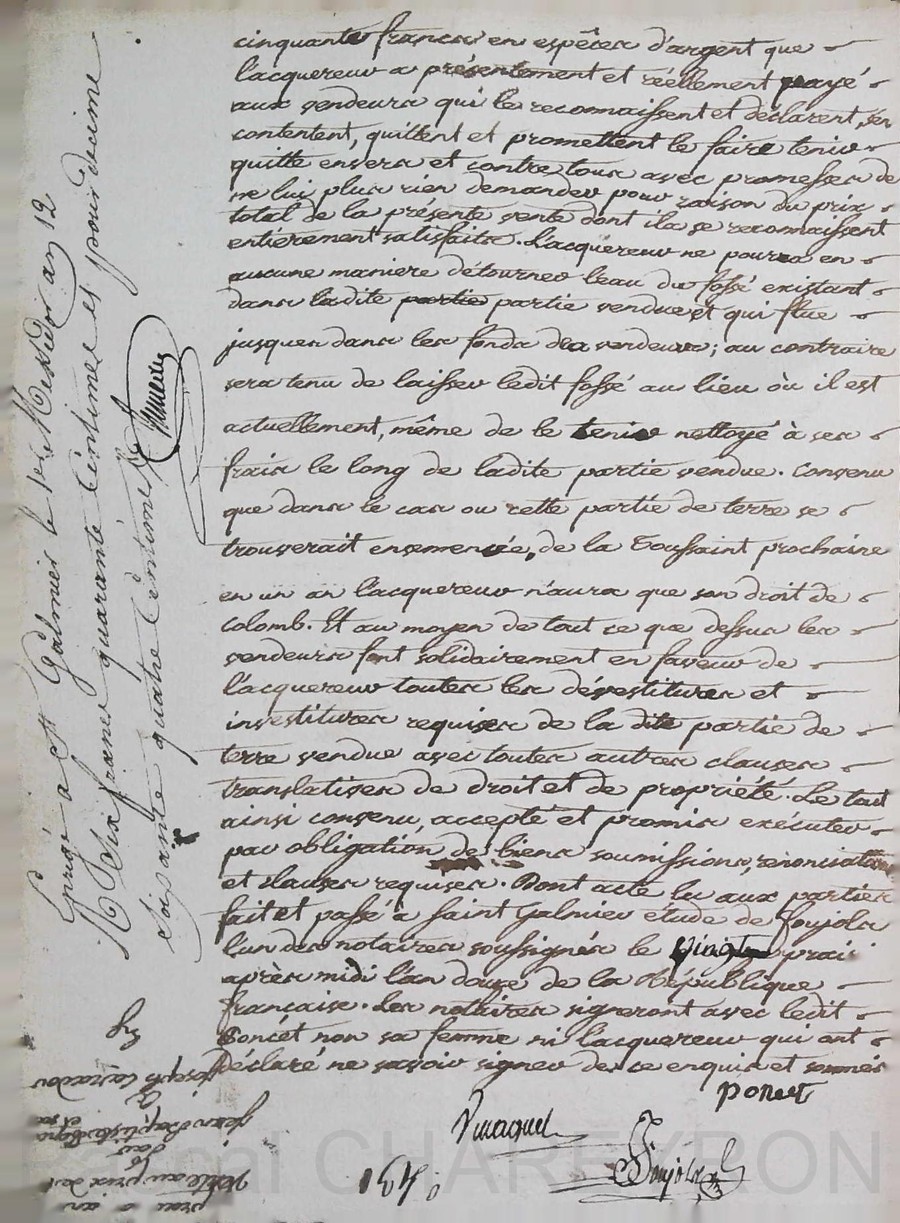 cinquante francs en espéces d'argent que
l'acquereur a présentement et réellement payé
aux vendeurs qui le reconnaissent et déclarent, s'en
contentent, quittent et promettent le faire tenir
quitte envers et contre tous avec promesses de
ne lui plus rien demander pour raison du prix
total de la présente vente dont ils se reconnaissent
entièrement satisfaits. L'acquéreur ne pourra en
aucune maniere détourner l'eau du fossé existant
dans ladite partie partie vendue et qui flue
jusques dans les fonds des vendeurs; au contraire
sera tenu de laisser ledit fossé au lieu où il est
actuellement, même de le tenir nettoyé à ses
frais le long de ladite partie vendue. Convenu
que dans le cas ou cette partie de terre se
trouverait ensemencée, de la Toussaint prochaine
en un an l'acquereur n'aura que son droit de
colomb. Et au moyen de tout ce que dessus les
vendeurs font solidairement en faveur de
l'acquereur toutes les dévestitures et
investitures requises de la dite partie de
terre vendue avec toutes autres clauses
translatives de droit et de propriété. Le tout
ainsi convenu, accepté et promis exécuter
par obligation de biens soumissions, renonciations
et clauses requises. Dont acte lu aux parties
fait et passé à Saint Galmier étude de Foujols
l'un des notaires soussignés le vingt prai
après midi l'an douze de la République
française. Les notaires signeront avec ledit
Poncet non sa femme ni l'acquereur qui ont
déclaré ne savoir signer de ce enquis et sommés
poncet
Foujols
Enrgé à St Galmier le 1er Messidor an 12
R Six francs quarante Centimes et pour décime
soixante quatre Centimes